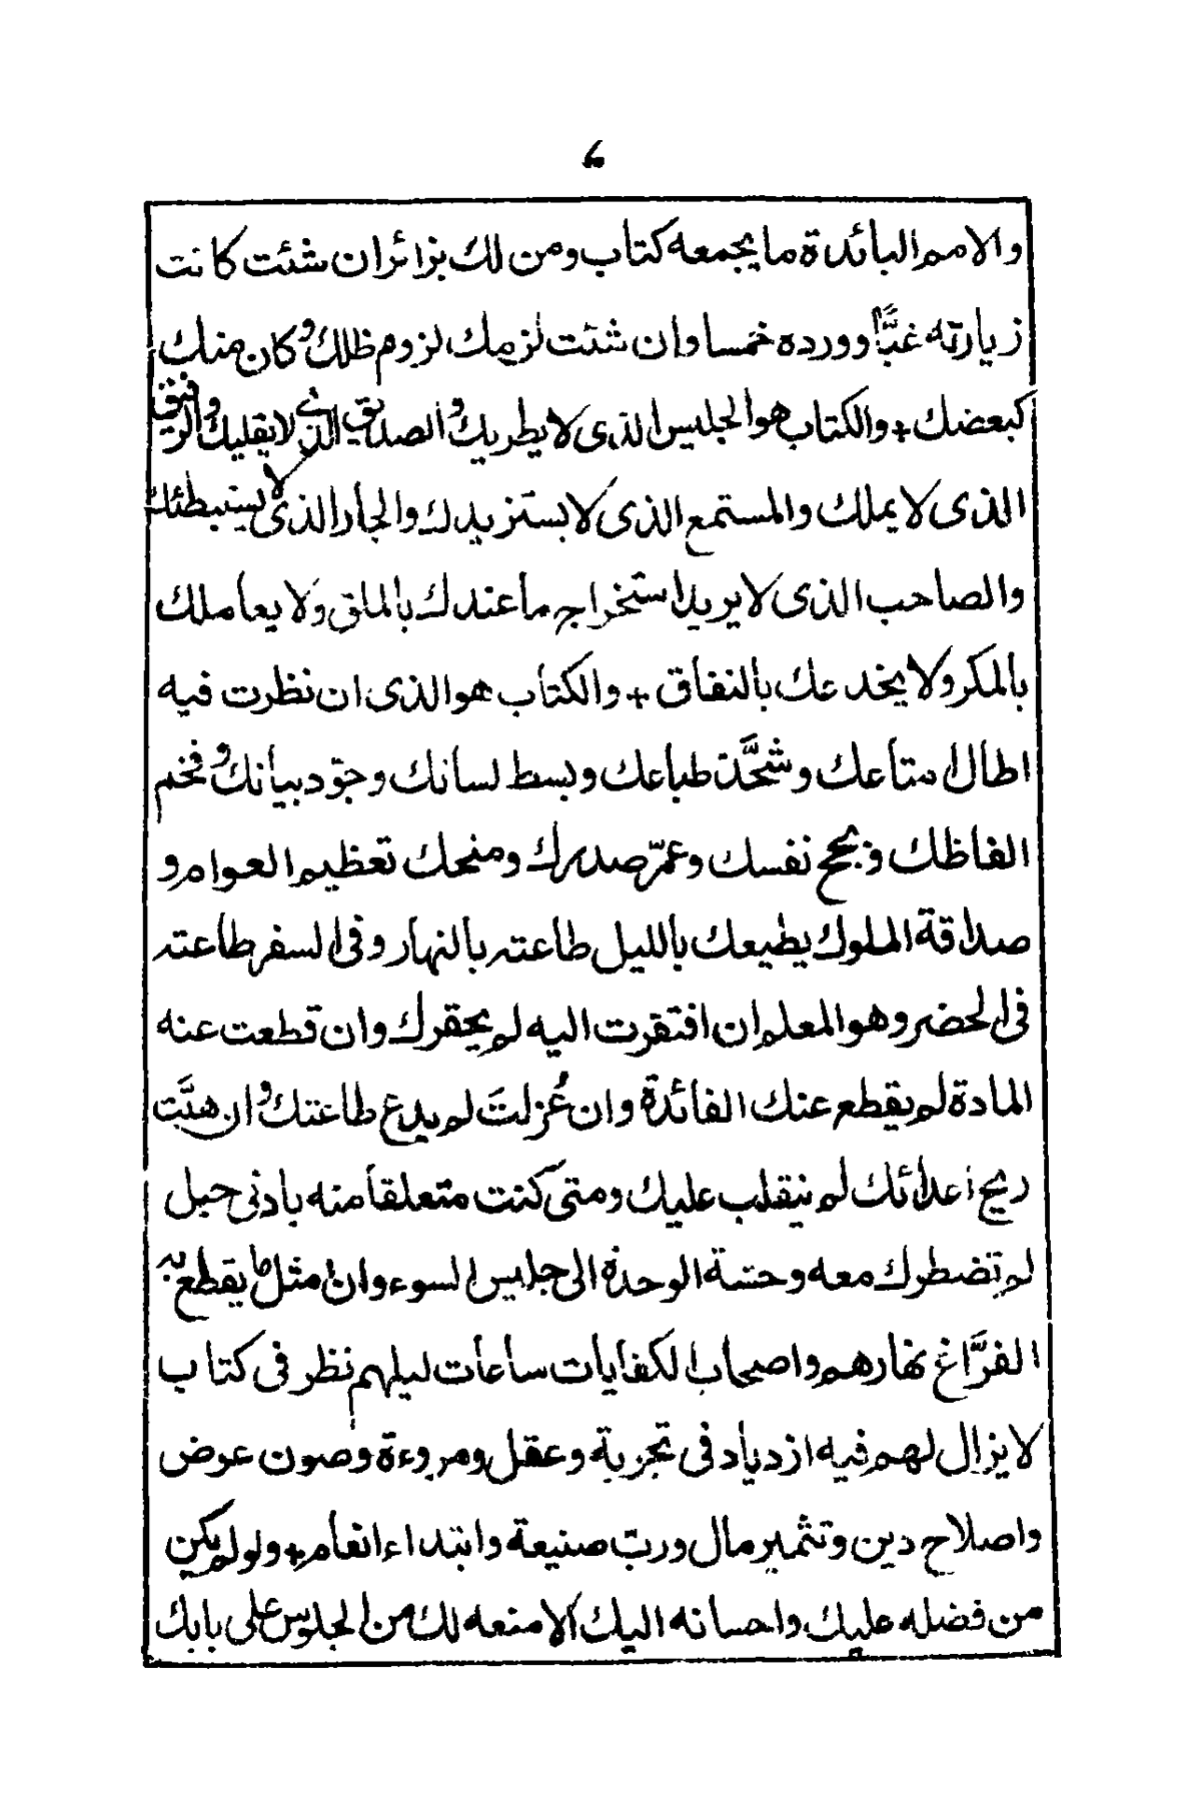 ٦
والامم البائدة ما يجمعه كتاب ومن لك بزائر ان شئت كانت
زيارته غبًّا ووردہ خمسا وان شئت لزمك لزوم ظلك وكان منك
كبعضك + والكتاب هو الجليس الذى لا يطريك والصديق الذى لا يقليك والرفيق
الذى لا يملك والمستمع الذى لا يستزيدك والجار الذى لا يستبطئك
والصاحب الذى لا يريد استخراج ما عندك بالملق ولا يعاملك
بالمكر ولا يخدعك بالنفاق + والكتاب هو الذى ان نظرت فيه
اطال امتاعك وشحَّذ طباعك وبسط لسانك وجوّد بيانك وفخم
الفاظك وبجح نفسك وعمّر صدرك ومنحك تعظيم العوام و
صداقة الملوك يطيعك بالليل طاعته بالنهار وفى السفر طاعته
فى الحضر وهو المعلم ان افتقرت اليه لم يحقرك وان قطعت عنه
المادة لم يقطع عنك الفائدة وان عُزلتَ لم يدع طاعتك وان هبَّت
ريح اعدائك لم ينقلب عليك ومتى كنت متعلقا منه بادنى حبل
لم تضطرك معه وحشة الوحدة الى جليس السوء وان امثل ما يقطع به
الفرَّاغ نهارهم واصحاب الكفايات ساعات ليلهم نظر فى كتاب
لا يزال لهم فيه ازدياد فى تجربة وعقل ومروءة وصون عرض
واصلاح دين وتثمير مال وربّ صنيعة وابتداء انعام + ولو لم يكن
من فضله عليك واحسانه اليك الا منعه لك من الجلوس على بابك